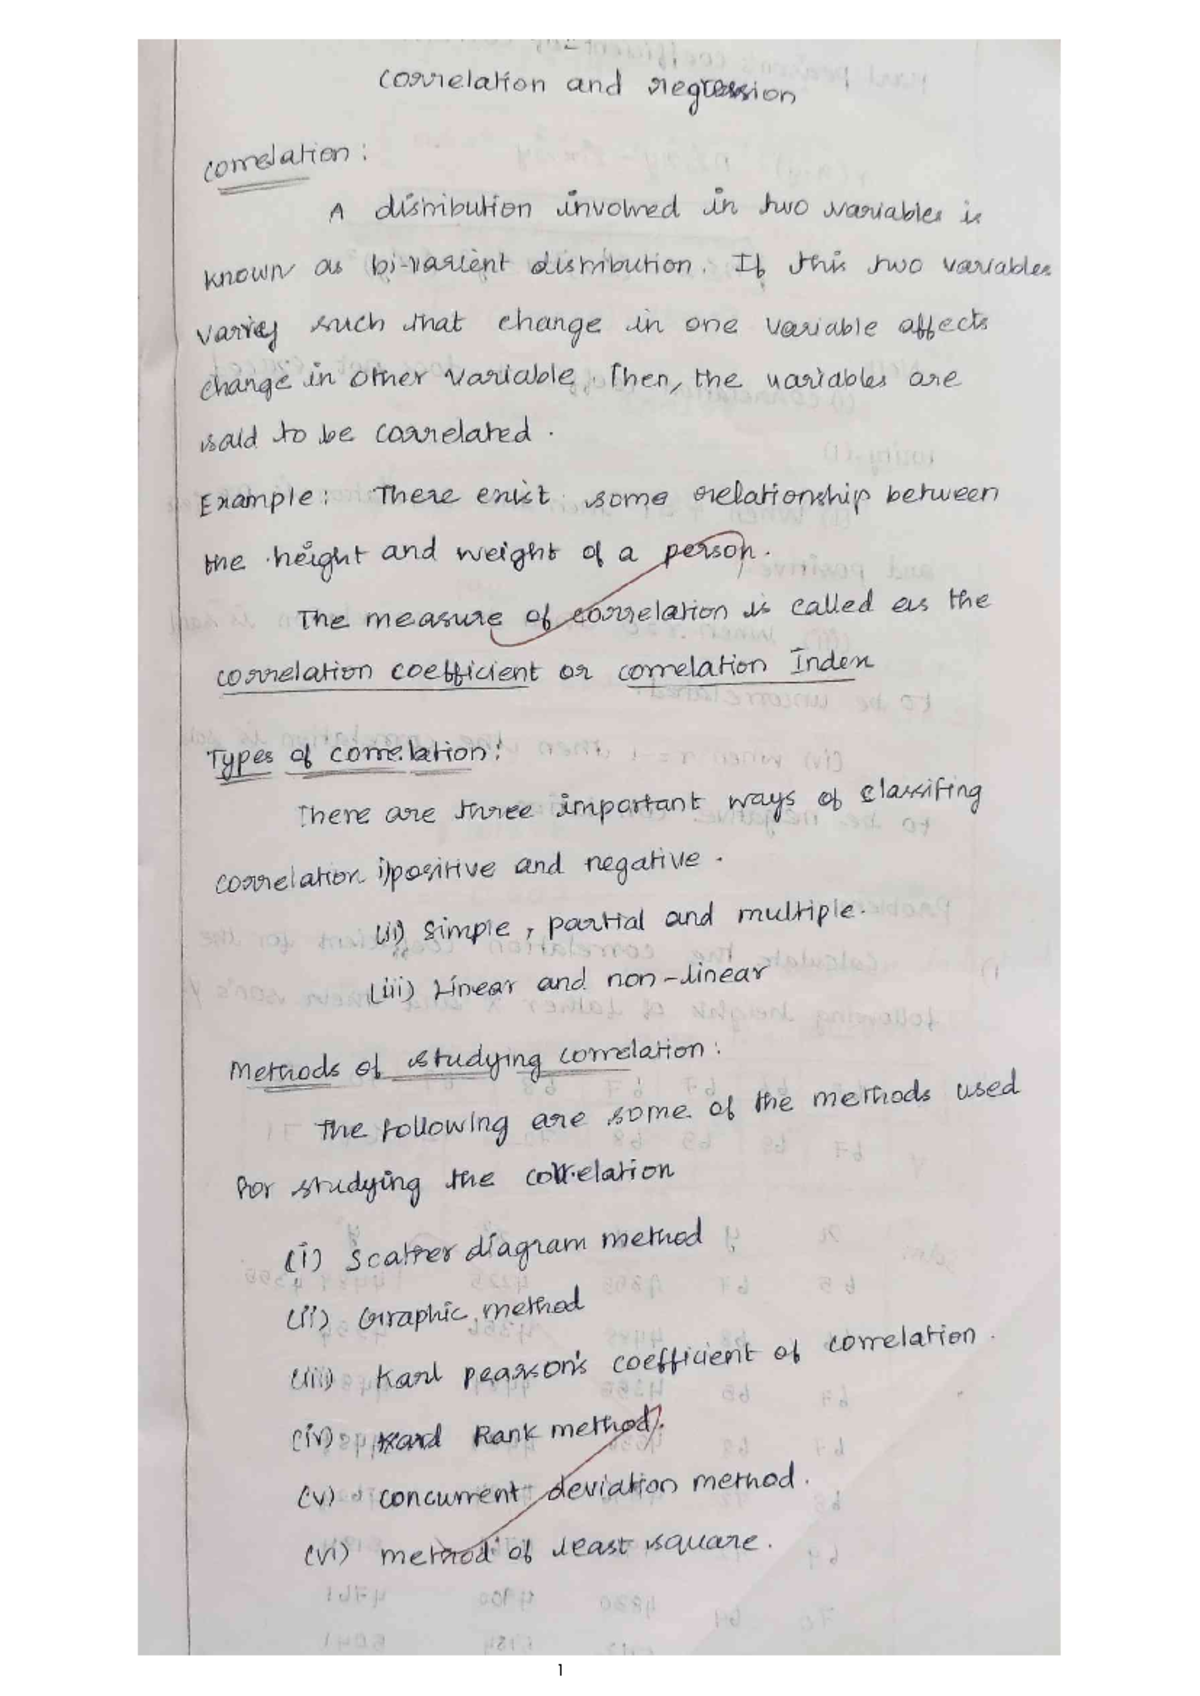 Correlation and regression
Correlation:
A distribution involved in two variables is
known as bi-varient distribution. If this two variables
varies such that change in one variable affects
change in other variable. Then, the variables are
said to be correlated.
Example: There exist some relationship between
the height and weight of a person.
The measure of correlation is called as the
correlation coefficient or correlation Index
Types of correlation:
There are three important ways of classifing
correlation i) positive and negative.
(ii) simple, partial and multiple.
(iii) Linear and non-linear
Methods of studying correlation:
The following are some of the methods used
for studying the correlation
(i) Scatter diagram method
(ii) Graphic method
(iii) Karl pearson's coefficient of correlation.
(iv) Rank method.
(v) concurrent deviation method.
(vi) method of least square.
1